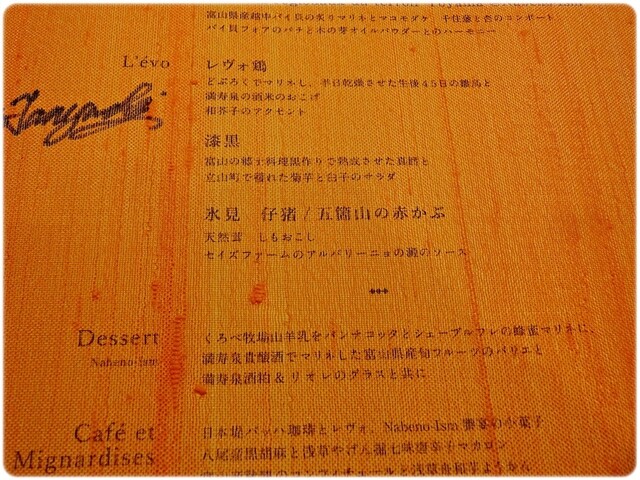 富山県産越中バイ貝の炙りマリネとマコモダケ 干住葱と杏のコンポート
バイ貝フォアのパテと木の芽オイルパウダーとのハーモニー
L'évo
レヴォ鶏
どぶろくでマリネし、半日乾燥させた生後45日の雛鳥と
満寿泉の酒米のおこげ
和芥子のアクセント
漆黒
富山の郷土料理黒作りで熟成させた真鱈と
立山町で穫れた菊芋と白子のサラダ
氷見 仔猪/五箇山の赤かぶ
天然茸 しもおこし
セイズファームのアルバリーニョの澱のソース
Dessert
Nabeno-Ism
くろべ牧場山羊乳をパンナコッタとシェーブルフレの蜂蜜マリネに、
満寿泉貴醸酒でマリネした富山県産旬フルーツのバリエと
満寿泉酒粕&リオレのグラスと共に
Café et
Mignardises
日本堤バッハ珈琲とレヴォ、Nabeno-Ism 饗宴の小菓子
八尾産黒胡麻と浅草やげん堀七味唐辛子マカロン
のコンフィチュールと浅草舟和芋ようかん